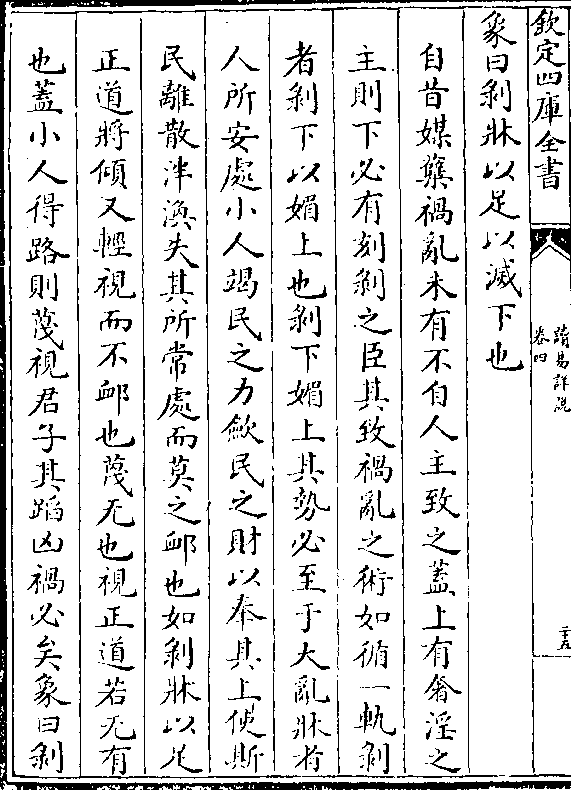 欽定四庫全書
讀易詳說
卷四
二十五
象曰剝牀以足以滅下也
自昔媒糵禍亂未有不自人主致之蓋上有奢淫之
主則下必有刻剝之臣其致禍亂之術如循一軌剝
者剝下以媚上也剝下媚上其勢必至于大亂牀者
人所安處小人竭民之力歛民之財以奉其上使斯
民離散泮渙失其所常處而莫之䘏也如剝牀以足
正道將傾又輕視而不䘏也蔑无也視正道若无有
也蓋小人得路則蔑視君子其蹈凶禍必矣象曰剝